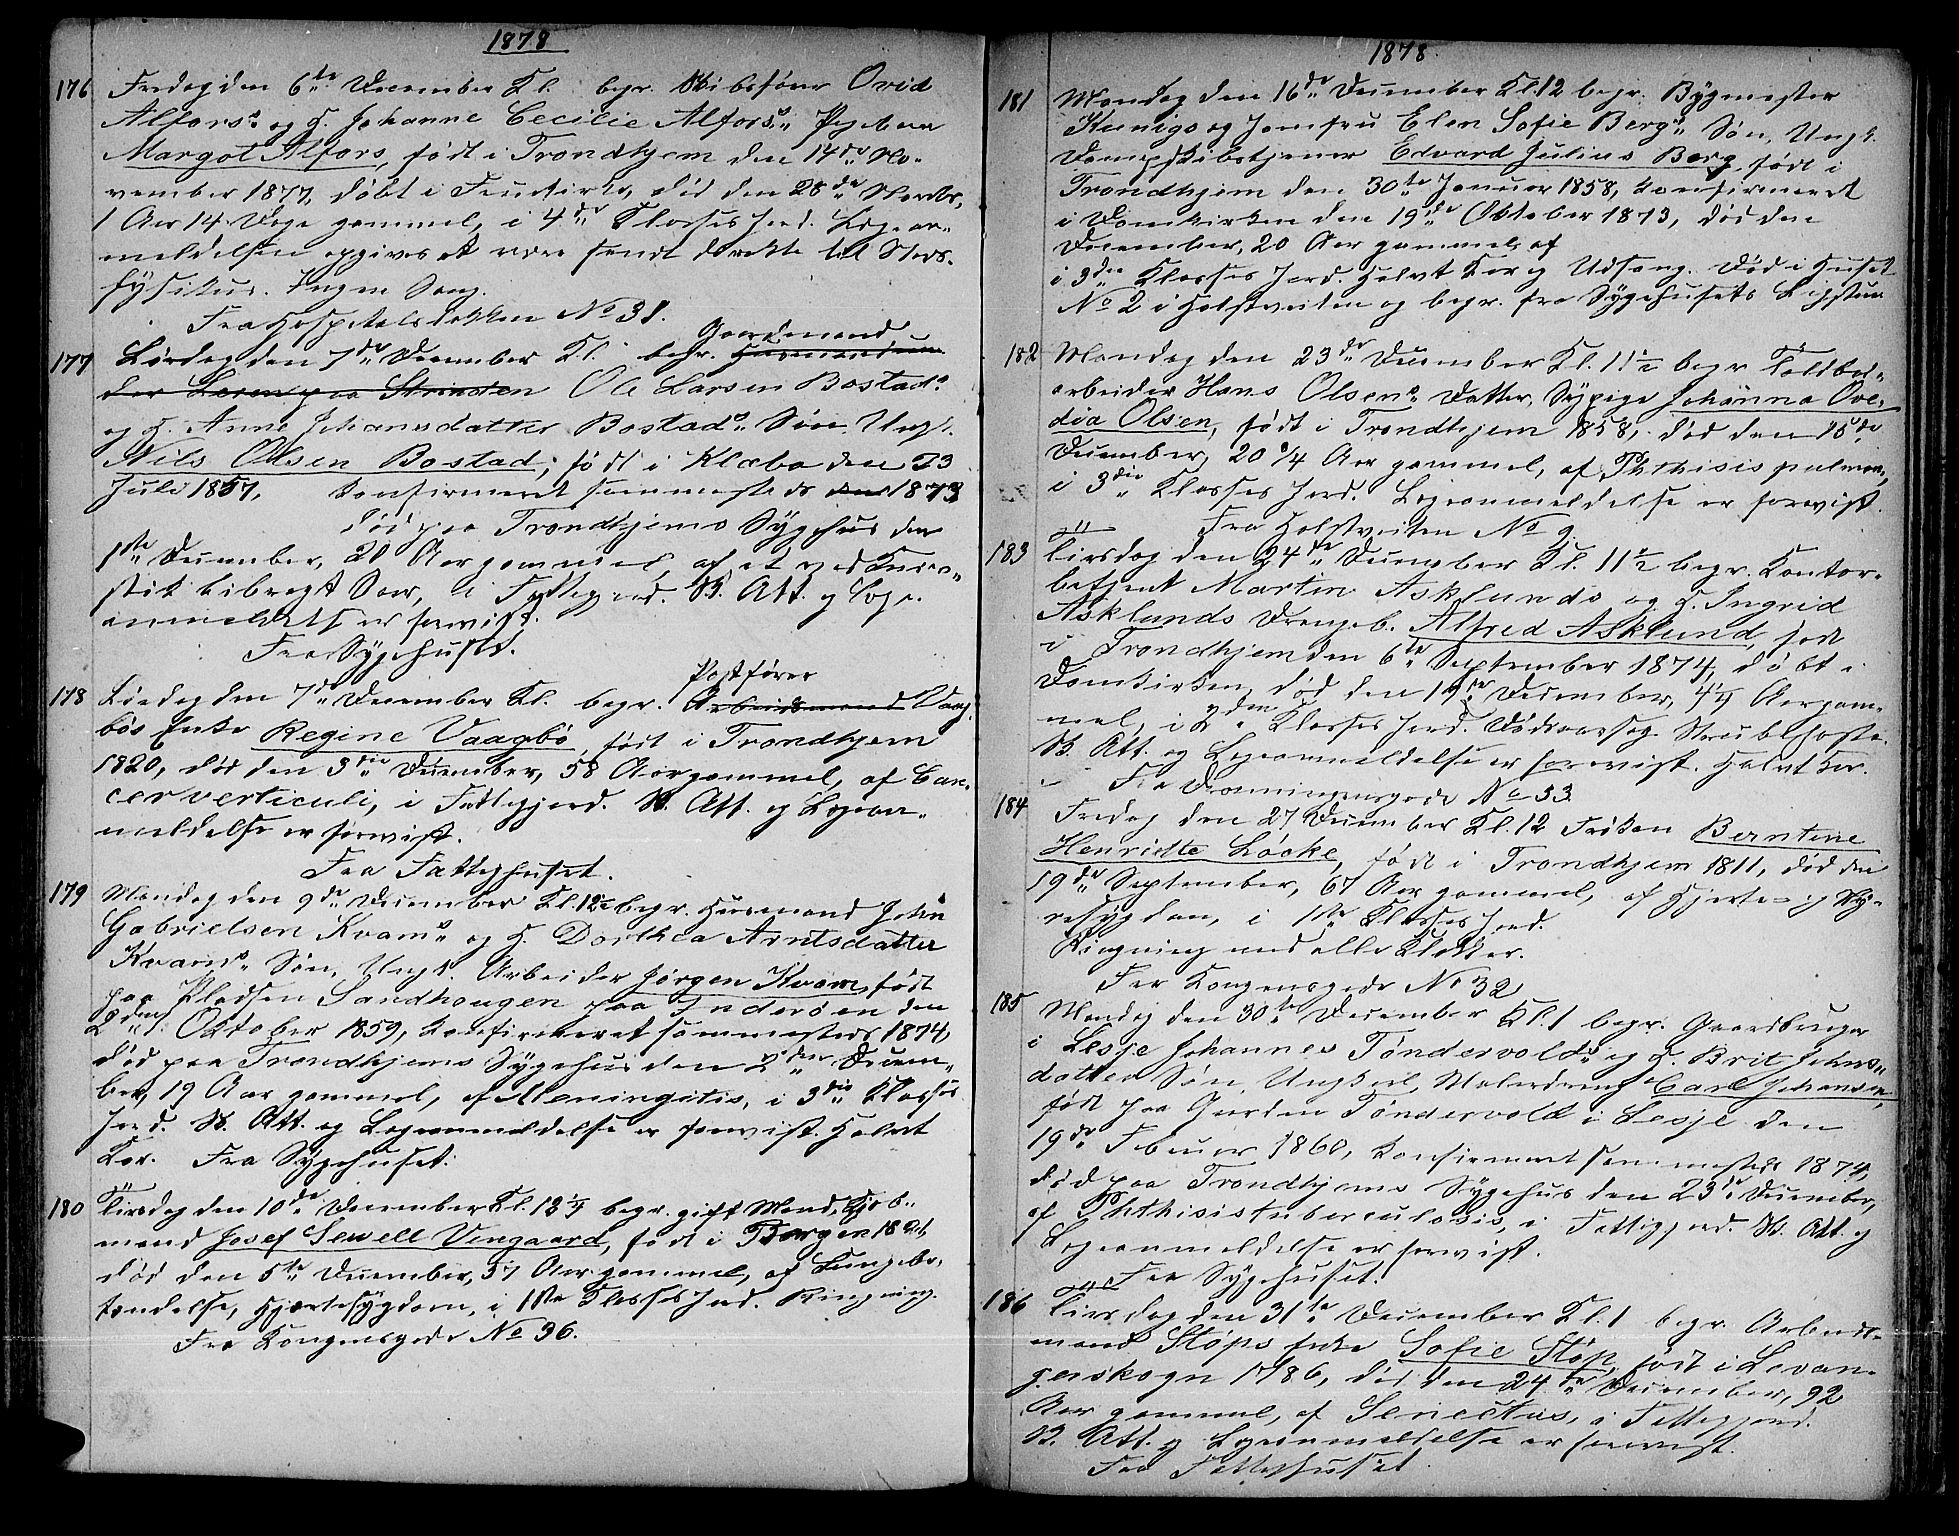 1878
176 Fredag den 6te December Kl. begr. Skibsfører Ovid
Alfors's og H. Johanne Cecilie Alfors's Pigebarn
Margot Alfors, født i Trondhjem den 14de No-
vember 1877, døbt i Fruekirke, død den 28de Novbr,
1 Aar 14 Dage gammel, i 4de Klasses Jord. Lægean-
meldelsen opgives at være sendt direkte til Stads-
fysikus. Ingen Sang.
Fra Hospitalsløkken No 38.
177 Lørdag den 7de December Kl. begr. Gaardmand
Ole Larsen Bostads
og H. Anne Johannsdatter Bostads Søn Ungk.
Nils Olsen Bostad, født i Klæbo den 23
Juli 1857, Konfirmeret sammesteds 1873
død paa Trondhjems Sygehus den
1ste December, 21 Aar gammel, af et ved Kniv-
stik bibragt Saar, i Fattigjord. Sk. Att. og Læge-
anmeldelse er forevist.
Fra Sygehuset.
178 Lørdag den 7de December Kl. begr. Postfører Vaag-
bøs Enke Regine Vaagbø, født i Trondhjem
1820, død den 3die December, 58 Aar gammel, af Can-
cer verticuli, i Fattigjord. Sk. Att. og Lægean-
meldelse er forevist.
Fra Fattighuset.
179 Mandag den 9de December Kl. 12 begr. Husmand John
Gabrielsen Kvams og H. Dorthea Arntsdatter
Kvams Søn, Ungk. Arbeider Jørgen Kvam, født
paa Pladsen Sandhaugen paa Inderøen den
2den Oktober 1859, konfirmeret sammesteds 1874,
død paa Trondhjems Sygehus den 2den Decem-
ber, 19 Aar gammel, af Meningitis, i 3die Klasses
Jord. Sk. Att. og Lægeanmeldelse er forevist. Halvt
Kor. Fra Sygehuset.
180 Tirsdag den 10de December Kl. 12 1/4 begr. gift Mand, Kjøb-
mand Josef Sewell Vengaard, født i Bergen
død den 5te December, 57 Aar gammel, af Lungebe-
tændelse, Hjertesygdom, i 1ste Klasses Jord. Ringning.
Fra Kongensgade No 36.
1878.
181 Mandag den 16de December Kl. 12 begr. Bygmester
og Jomfru Elen Sofie Bergs Søn, Ungk.
Dampskibstjener Edvard Julius Berg født i
Trondhjem den 30te Januar 1858, konfirmeret
i Domkirken den 19de Oktober 1873, død den
December, 20 Aar gammel, af
i 3die Klasses Jord. Halvt Kor og Udsang. Død i Huset
No 2 i Holstveiten og begr. fra Sygehusets Ligstue
182 Mandag den 23de December Kl. 11 1/2 begr. Toldbod-
arbeider Hans Olsens Datter, Sypige Johanna Ove-
dia Olsen, født i Trondhjem 1858, død den 15de
December, 20 3/4 Aar gammel, af Phthisis pulmon,
i 3die Klasses Jord. Lægeanmeldelse er forevist.
Fra Holstveiten No 9.
183 Tirsdag den 24de December Kl. 11 1/2 begr. Kontor-
betjent Martin Asklunds og H. Ingrid
Asklunds Drengeb. Alfred Asklund, født
i Trondhjem den 6te September 1874, døbt i
Domkirken, død den 19de December, 4 1/4 Aar gam-
mel, i 2den Klasses Jord. Dødsaarsag Strubehoste.
Sk. Att. og Lægeanmeldelse er forevist. Halvt Kor.
Fra Dronningensgade No 33
184 Fredag den 27 December Kl. 12 Frøken Berntine
Henriette Løcke, født i Trondhjem 1811, død den
19de September, 67 Aar gammel, af Hjerte- og Ny-
resygdom, i 1ste Klasses Jord.
Ringning med alle Klokker.
Fra Kongensgade No 32
185 Mandag den 30te December Kl. 1 begr. Gaardbruger
i Lesje Johannes Tøndervolds og H. Brit Johns-
datters Søn, Ungkarl, Malerdreng Carl Johansen,
født paa Gaarden Tøndervold i Lesje den
19de Februar 1860, konfirmeret sammesteds 1874,
død paa Trondhjems Sygehus den 23de December,
af Phthisis tuberculosis, i Fattigjord. Sk. Att. og
Lægeanmeldelse er forevist.
Fra Sygehuset.
186 Tirsdag den 31te December Kl. 1 begr. Arbeids-
mand Støps Enke Sofie Støp, født i Levan-
gerskogn 1786, død den 24de December, 92
Aar gammel, af Senectus, i Fattigjord.
Sk. Att. og Lægeanmeldelse er forevist.
Fra Fattighuset